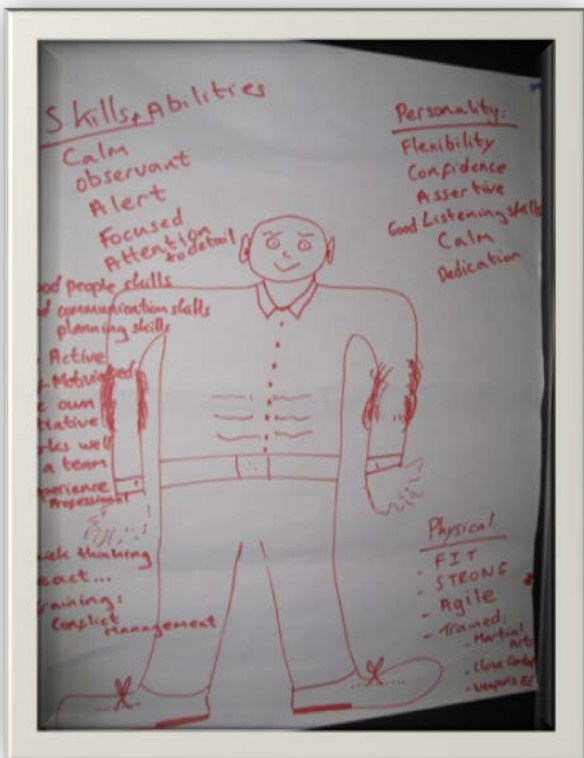 Skills & Abilities
Calm
observant
Alert
Focused
Attention
to detail
people skills
communication skills
planning skills
Active
own
well
a team
Professional
thinking
react...
Training:
Conflict
Management
Personality:
Flexibility
Confidence
Assertive
Good Listening skills
Calm
Dedication
Physical
- FIT
- STRONG
- Agile
- Trained:
- Martial
Arts
- Close
- Weapons